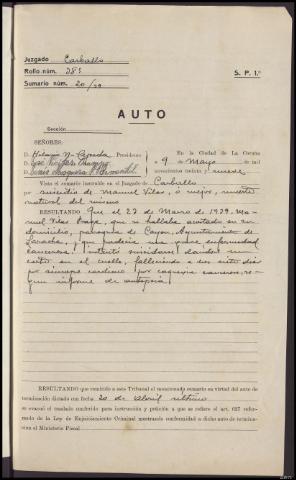 Juzgado Carballo
Rollo núm. 283
Sumario núm. 20/39
S. P. 1.º
AUTO
Sección
SEÑORES:
D. Presidente
D. José
D. Luis
En la Ciudad de La Coruña
a 9 de Mayo de mil
novecientos treinta y nueve.
Vista el sumario instruido en el Juzgado de Carballo
por suicidio de Manuel Vilas, o mejor, muerte
natural del mismo
RESULTANDO Que el 27 de Marzo de 1939 Ma-
nuel Vilas que se hallaba acostado en su
domicilio, parroquia de Cayon, Ayuntamiento de
Laracha, y que padecia una grave enfermedad
cancerosa, intentó suicidarse dandose un
corte en el cuello, falleciendo a los siete dias
por sincope cardiaco por caquexia cancerosa, se-
gun informe de autopsia.
RESULTANDO que remitido a este Tribunal el mencionado sumario en virtud del auto de
terminación dictado con fecha 20 de Abril ultimo
se evacuó el traslado conferido para instrucción y petición a que se refiere el art. 627 refor-
mado de la Ley de Enjuiciamiento Criminal mostrando conformidad a dicho auto de termina-
ción el Ministerio Fiscal